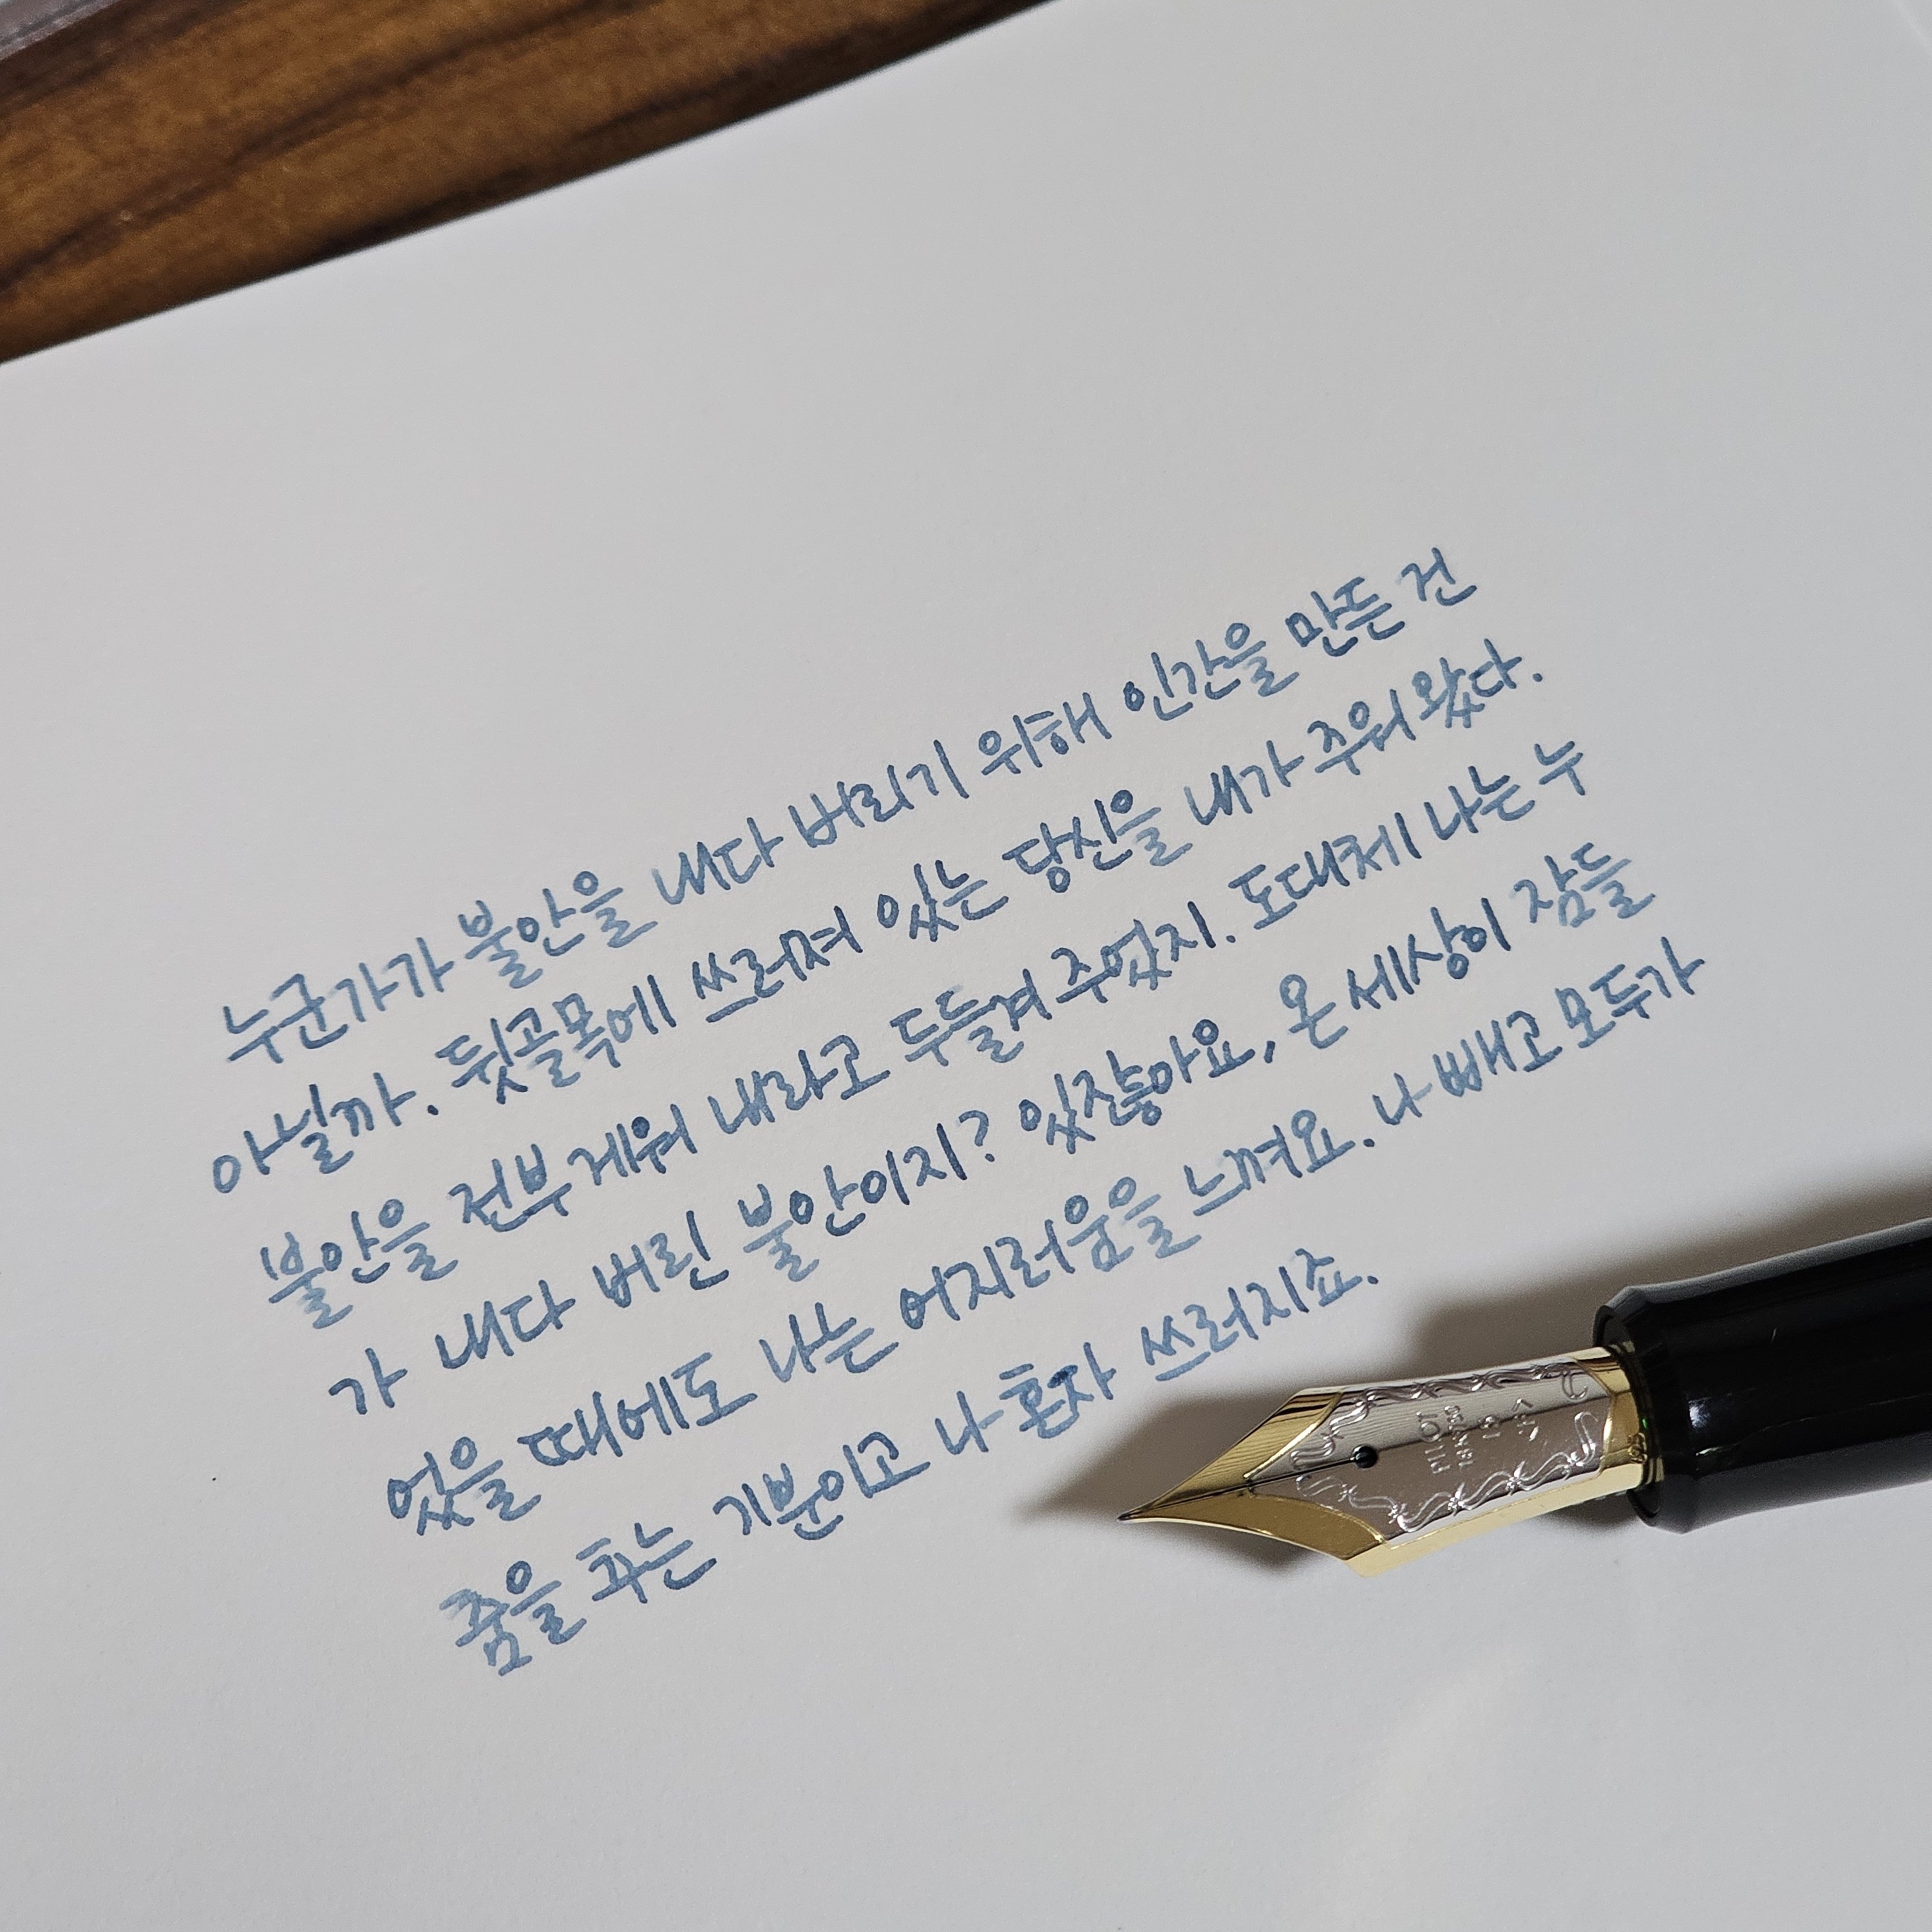 누군가가 불안을 내다 버리기 위해 인간을 만든 건
아닐까. 뒷골목에 쓰러져 있는 당신을 내가 주워 왔다.
불안을 전부 게워 내라고 두들겨 주었지. 도대체 나는 누
가 내다 버린 불안이지? 있잖아요, 온 세상이 잠들
었을 때에도 나는 어지러움을 느껴요. 나 빼고 모두가
춤을 추는 기분이고 나 혼자 쓰러지죠.
PILOT